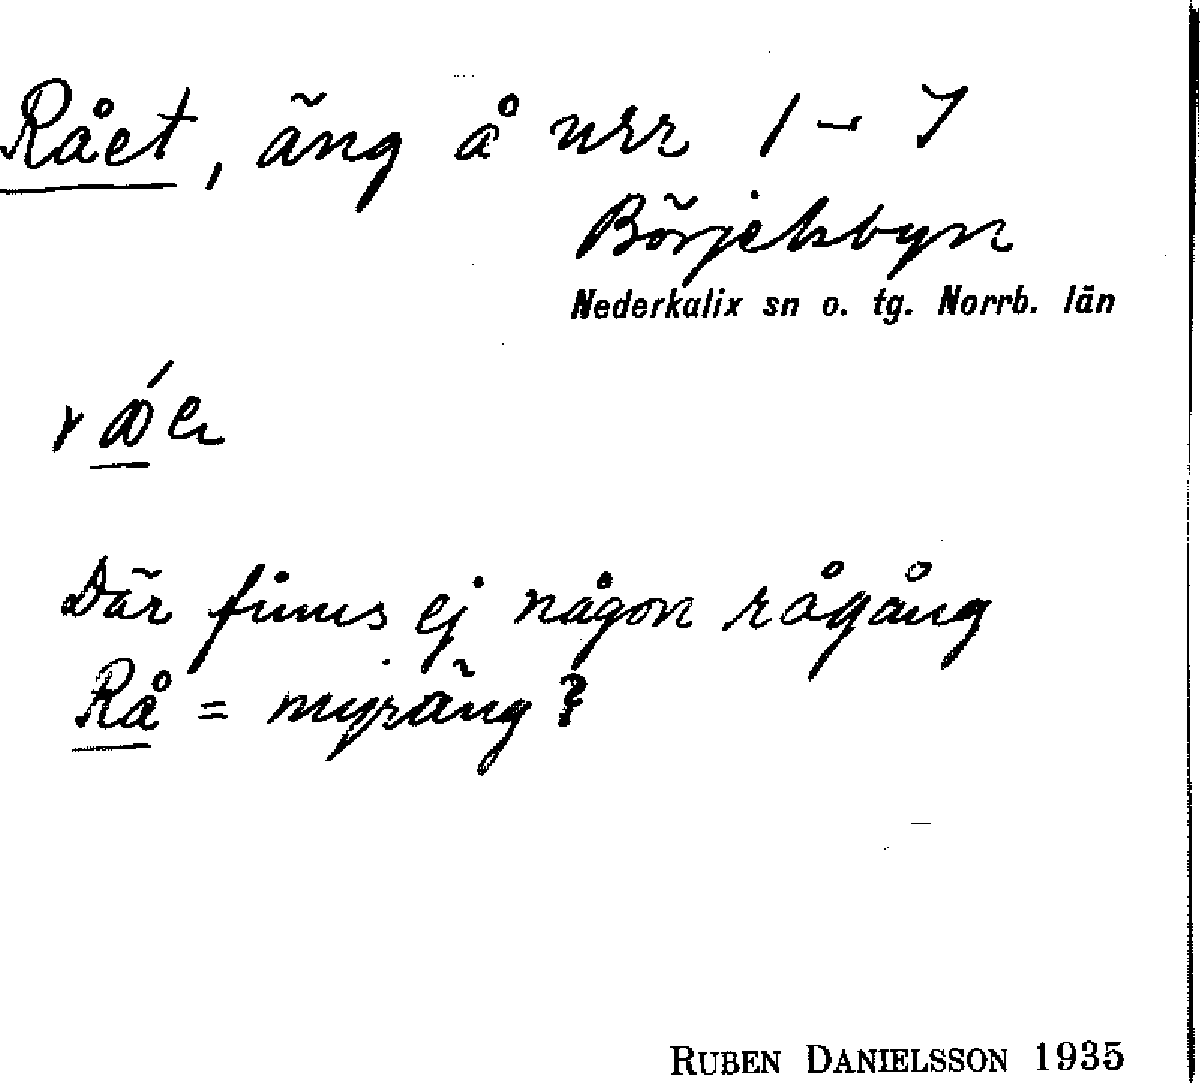 Rået, äng å nrr 1–7
Börjelsbyn
Nederkalix sn o. tg. Norrb. län
Där finns ej någon rågång
Rå = myräng?
RUBEN DANIELSSON 1935